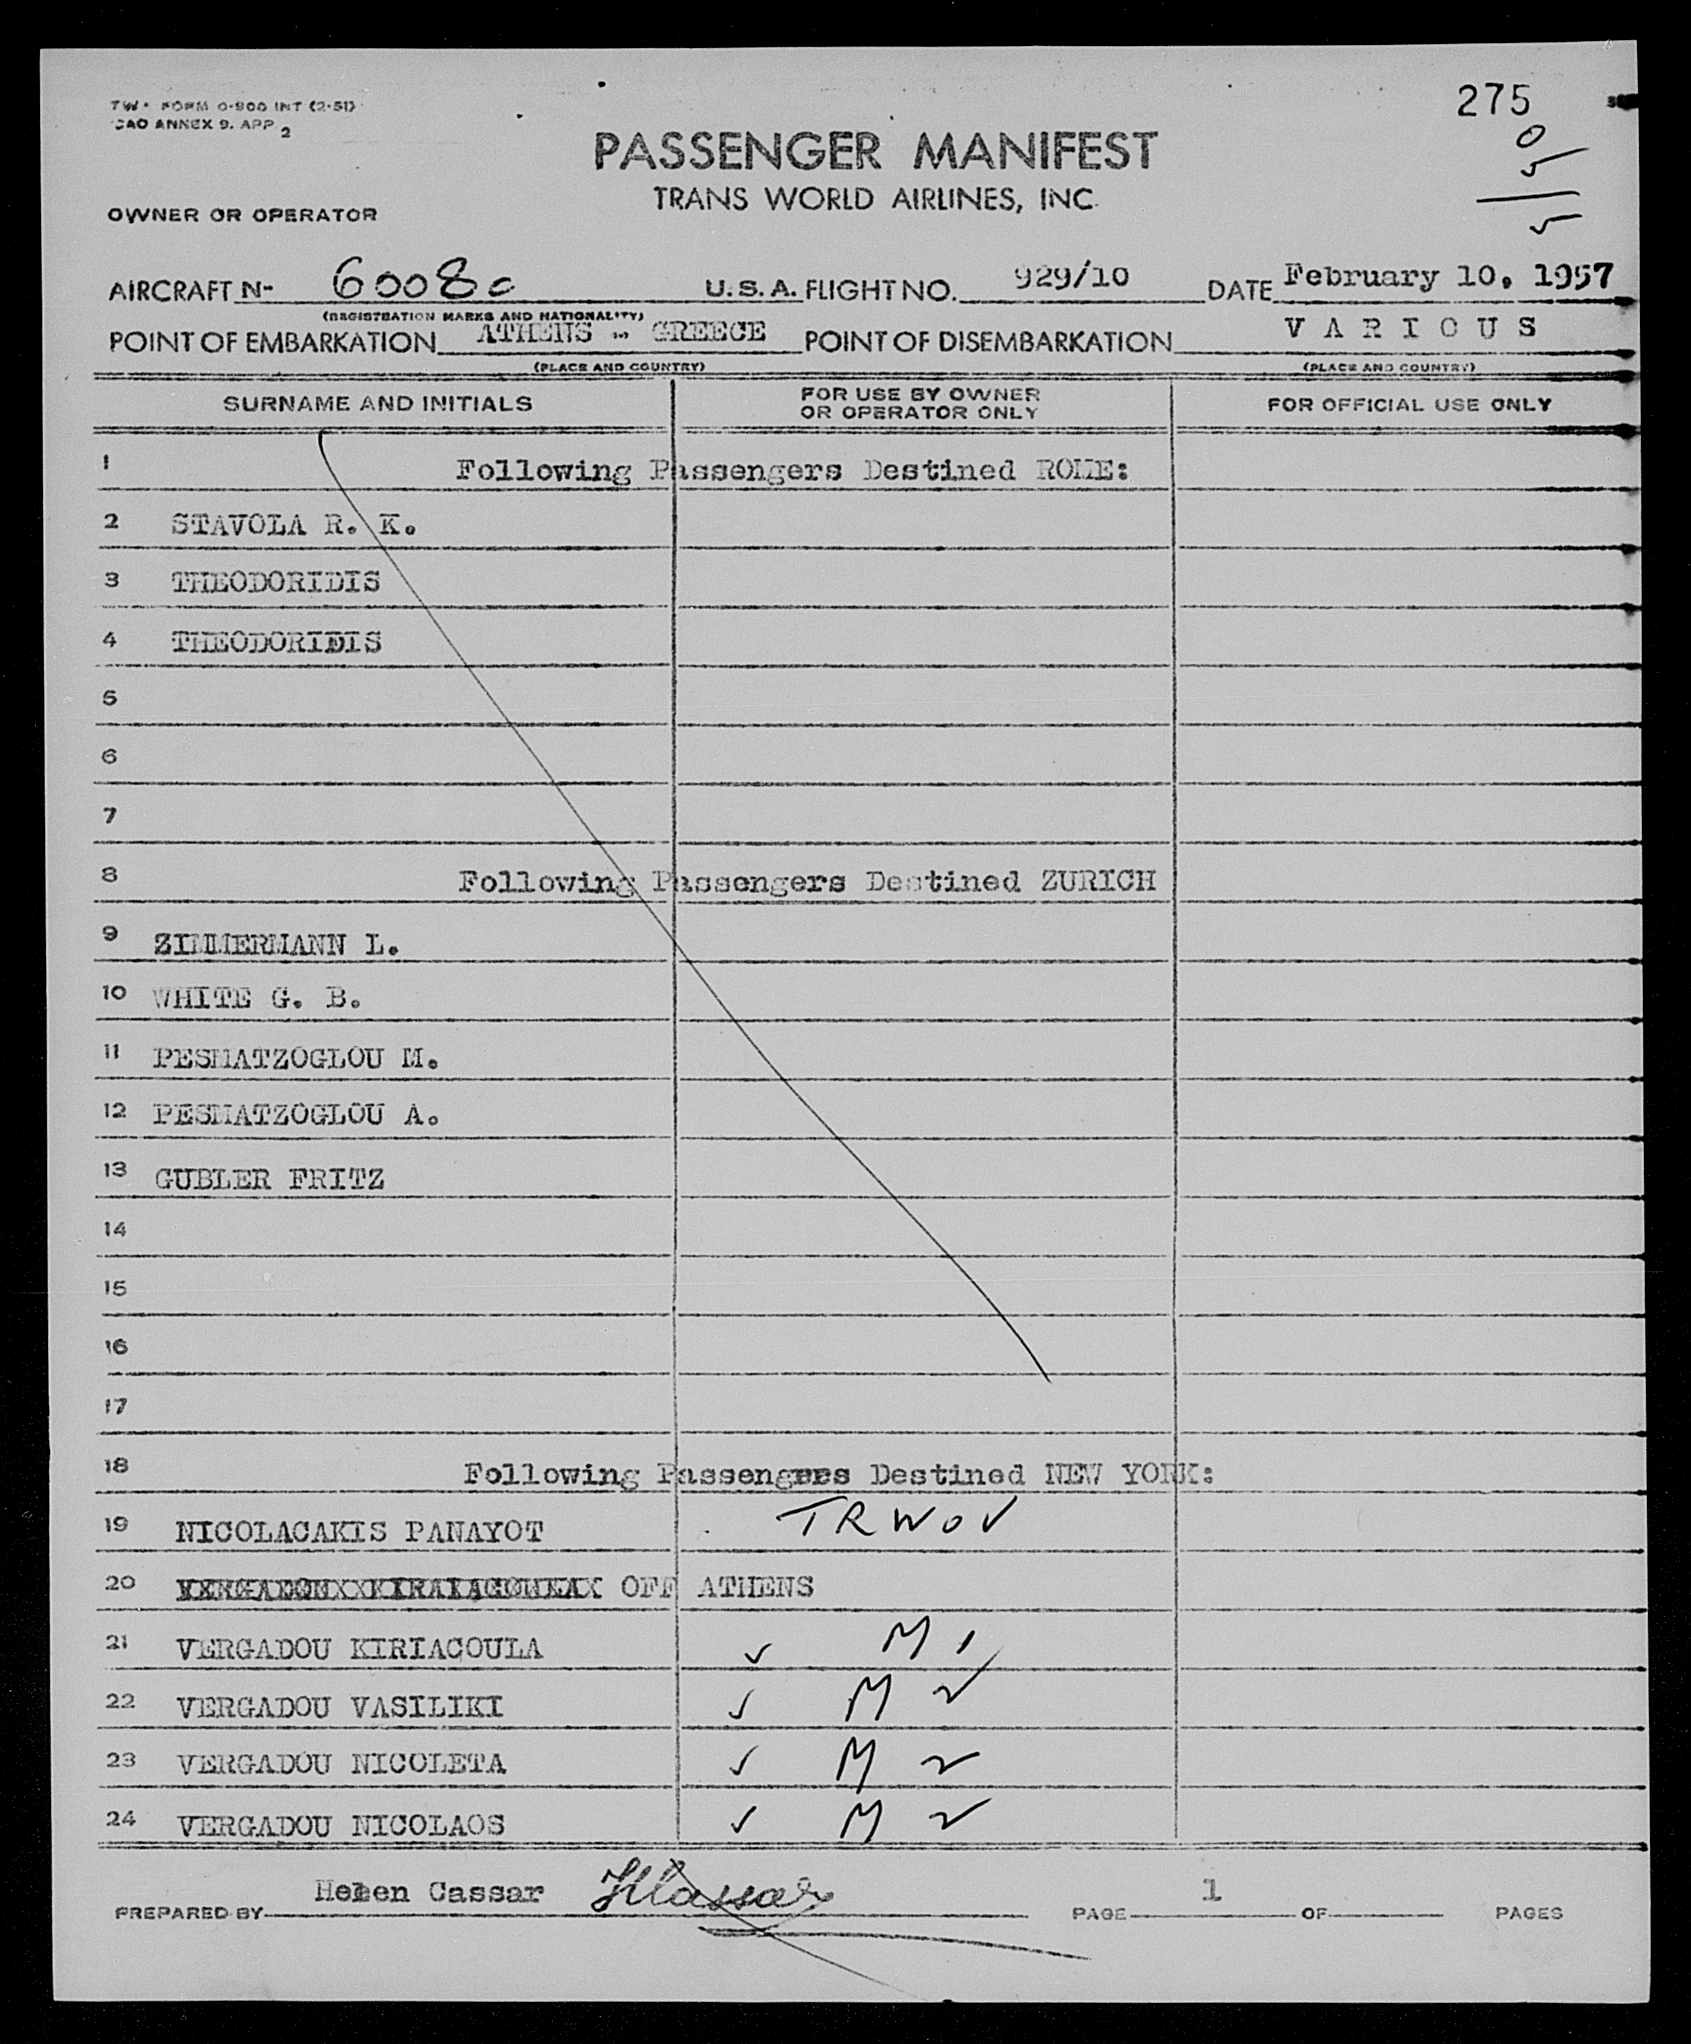 TW· FORM O-900 INT (2-51)
CAO ANNEX 9. APP 2
275
0
5
5
PASSENGER MANIFEST
TRANS WORLD AIRLINES, INC.
OWNER OR OPERATOR
AIRCRAFT N- 6008c U.S.A. FLIGHT NO. 929/10 DATE February 10, 1957
(REGISTRATION MARKS AND NATIONALITY)
POINT OF EMBARKATION ATHENS - GREECE POINT OF DISEMBARKATION VARIOUS
(PLACE AND COUNTRY) (PLACE AND COUNTRY)
SURNAME AND INITIALS FOR USE BY OWNER OR OPERATOR ONLY FOR OFFICIAL USE ONLY
1 Following Passengers Destined ROME:
2 STAVOLA R. K.
3 THEODORIDIS
4 THEODORIDIS
5
6
7
8 Following Passengers Destined ZURICH
9 ZIMMERMANN L.
10 WHITE G. B.
11 PESMATZOGLOU M.
12 PESMATZOGLOU A.
13 GUBLER FRITZ
14
15
16
17
18 Following Passengers Destined NEW YORK:
19 NICOLACAKIS PANAYOT TRWOV
20 OFF ATHENS
21 VERGADOU KIRIACOULA ✓ M 1
22 VERGADOU VASILIKI ✓ M 2
23 VERGADOU NICOLETA ✓ M 2
24 VERGADOU NICOLAOS ✓ M 2
PREPARED BY Helen Cassar HCassar PAGE 1 OF PAGES